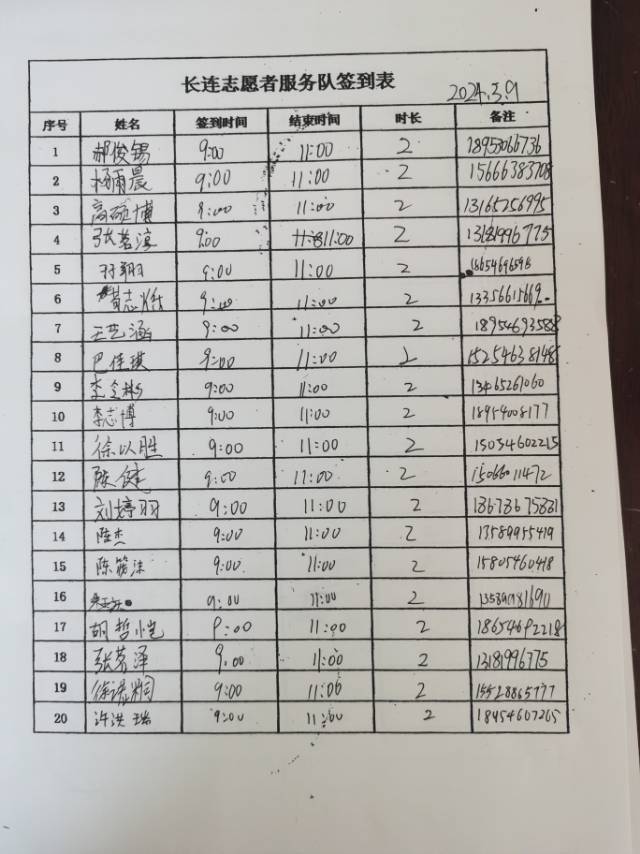 长连志愿者服务队签到表
2024.3.9
序号 姓名 签到时间 结束时间 时长 备注
1 郝俊锡 9:00 11:00 2 18953066736
2 杨雨晨 9:00 11:00 2 15666383708
3 高硕博 9:00 11:00 2 13165256995
4 9:00 11:00 2 13181996775
5 9:00 11:00 2
6 9:00 11:00 2
7 王艺涵 9:00 11:00 2 18954693588
8 巴佳琪 9:00 11:00 15254638148
9 9:00 11:00 2 13465261060
10 李志博 9:00 11:00 2 18954008177
11 徐以胜 9:00 11:00 2 15054602215
12 陈健 9:00 11:00 2 15066011472
13 刘婷羽 9:00 11:00 2 18678675881
14 陆杰 9:00 11:00 2 13589955419
15 9:00 11:00 2 15805460418
16 9:00 11:00 2
17 胡哲恺 9:00 11:00 2 18654692218
18 张茗泽 9:00 11:00 2 13181996775
19 9:00 11:00 2 15528865777
20 许洪瑞 9:00 11:00 2 18454607265